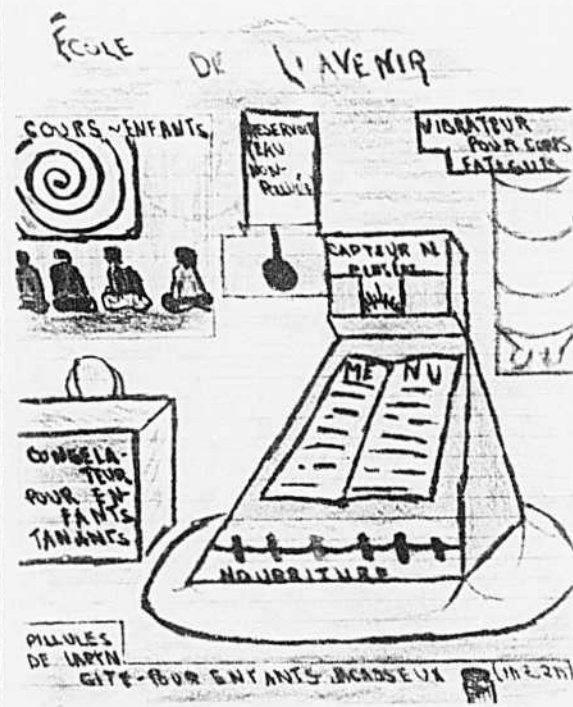 École
DE L'AVENIR
COURS ~ ENFANTS
RESERVOIR
D'EAU
NON-
POLLUÉE
VIBRATEUR
POUR CORPS
FATIGUÉS
CAPTEUR DE
MENU
CONGÉLA-
TEUR
POUR EN-
FANTS
TANANTS
NOURRITURE
PILLULES
DE LAPIN
GITE-POUR ENFANTS JACASSEUX